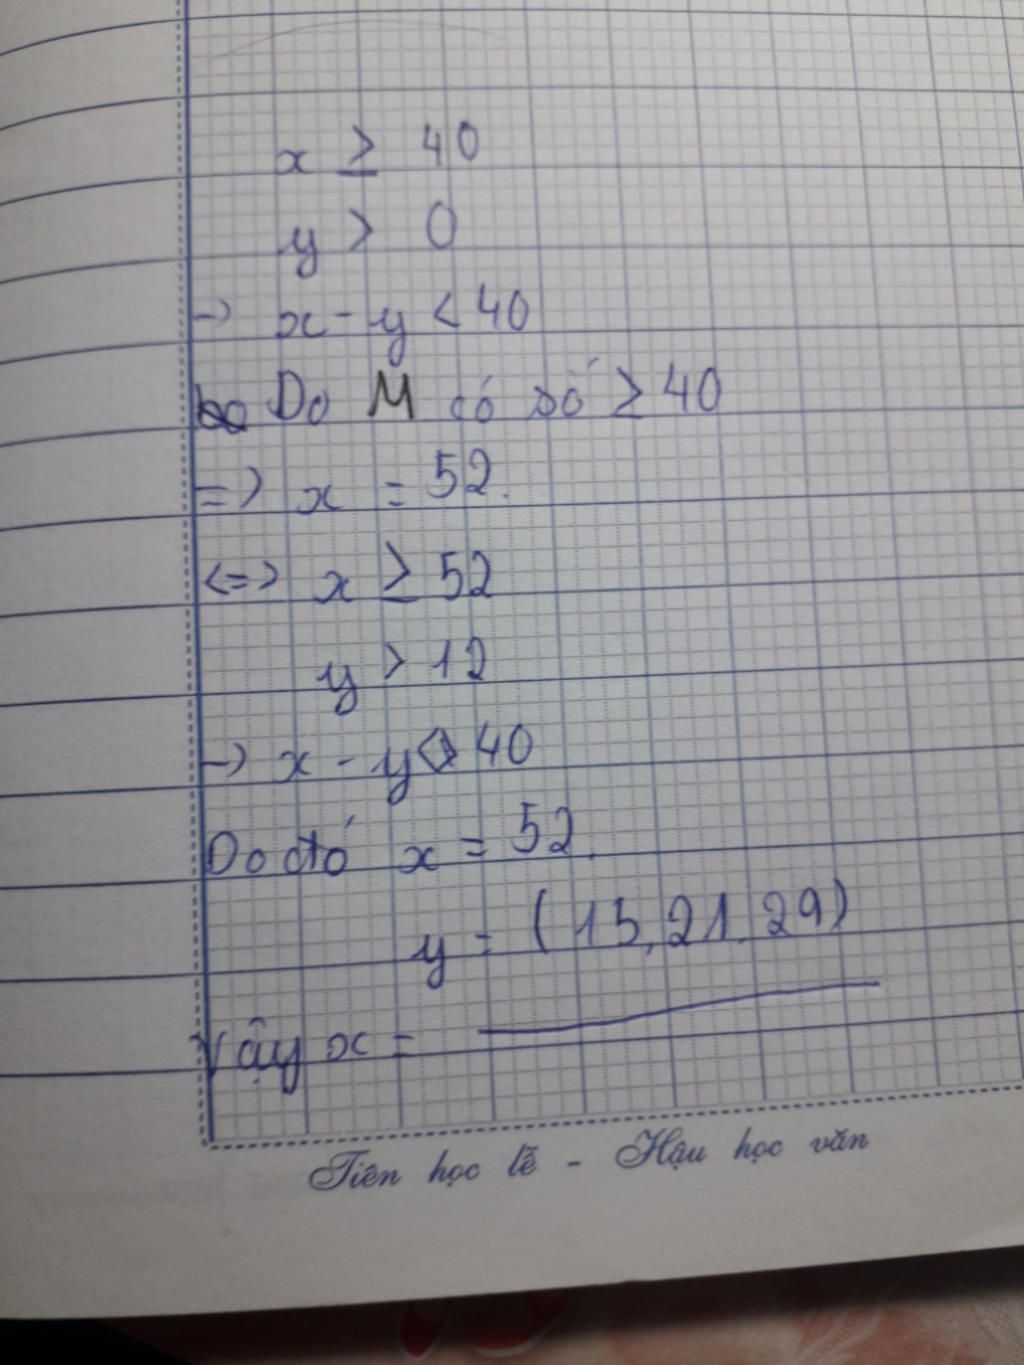 x ≥ 40
y > 0
→ x - y < 40
Do M có số ≥ 40
=> x = 52.
<=> x ≥ 52
y > 12
→ x - y 40
Do đó x = 52.
y = (15, 21, 29)
Vậy x =
Tiên học lễ - Hậu học văn